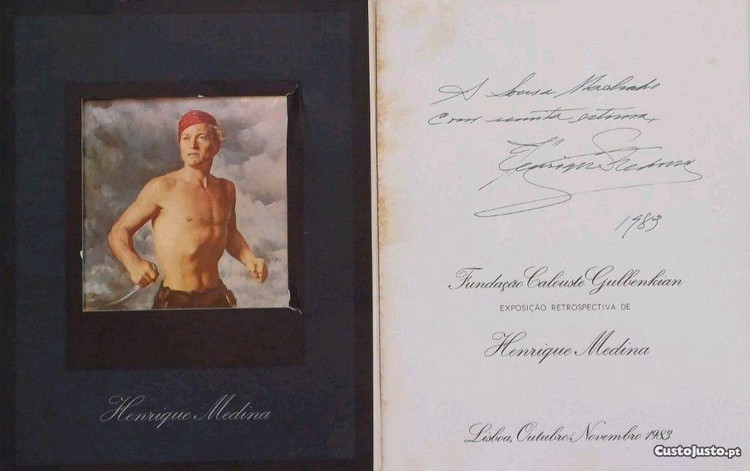 Henrique Medina
A Sousa Machado
Com muita estima,
Henrique Medina
1983
Fundação Calouste Gulbenkian
EXPOSIÇÃO RETROSPECTIVA DE
Henrique Medina
Lisboa, Outubro-Novembro 1983
CustoJusto.pt